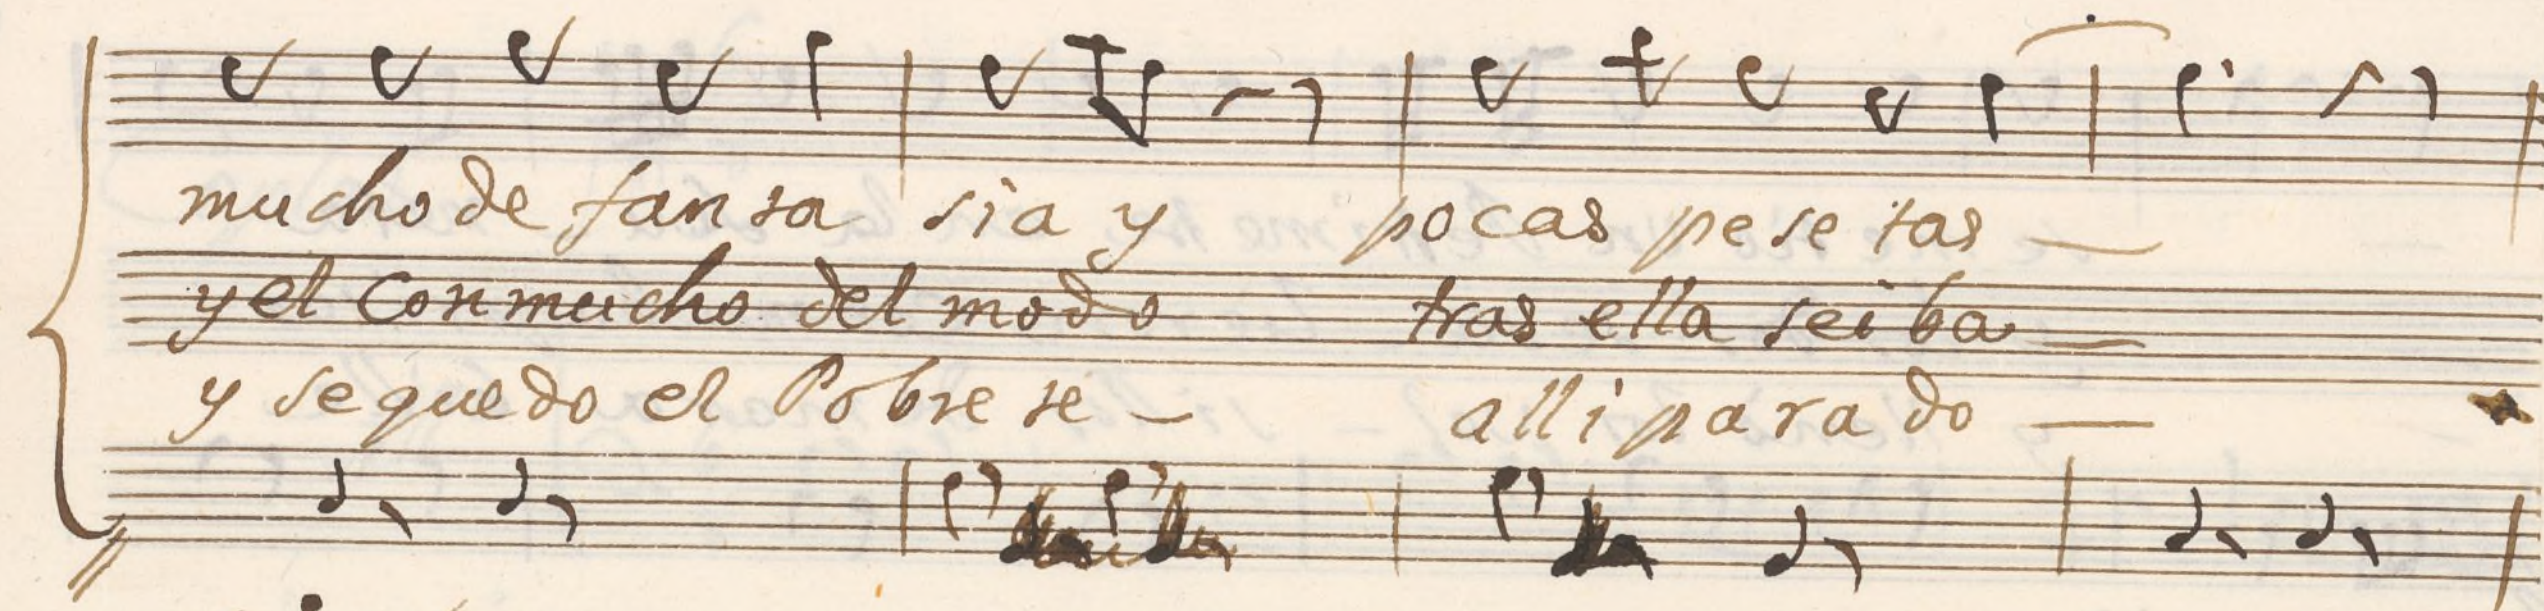 mucho de fantasia y pocas pesetas
y el con mucho del modo tras ella se iba
y se quedo el Pobrete alli parado